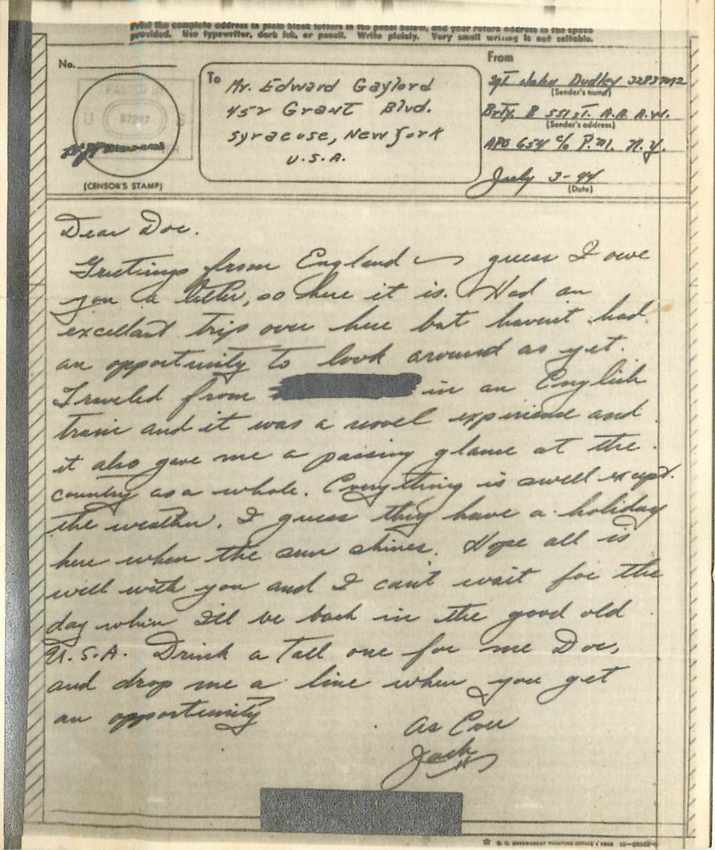 Print the complete address in plain block letters in the panel below, and your return address in the space
provided. Use typewriter, dark ink, or pencil. Write plainly. Very small writing is not suitable.
No.
PASSED BY
U S
(CENSOR'S STAMP)
To
Mr. Edward Gaylord
452 Grant Blvd.
Syracuse, New York
U.S.A.
From
Sgt. John Dudley
(Sender's name)
Btry. B 551 st. A.A.A.
(Sender's address)
APO 654 c/o P.M. N.Y.
July 3-44
(Date)
Dear Doc.
Greetings from England guess I owe
you a letter, so here it is. Had an
excellant trip over here but haven't had
an opportunity to look around as yet.
Traveled from in an English
train and it was a novel experience and
it also gave me a passing glance at the
country as a whole. Everything is swell except
the weather. I guess they have a holiday
here when the sun shines. Hope all is
well with you and I can't wait for the
day when I'll be back in the good old
U.S.A. Drink a tall one for me Doc,
and drop me a line when you get
an opportunity
As Ever
Jack